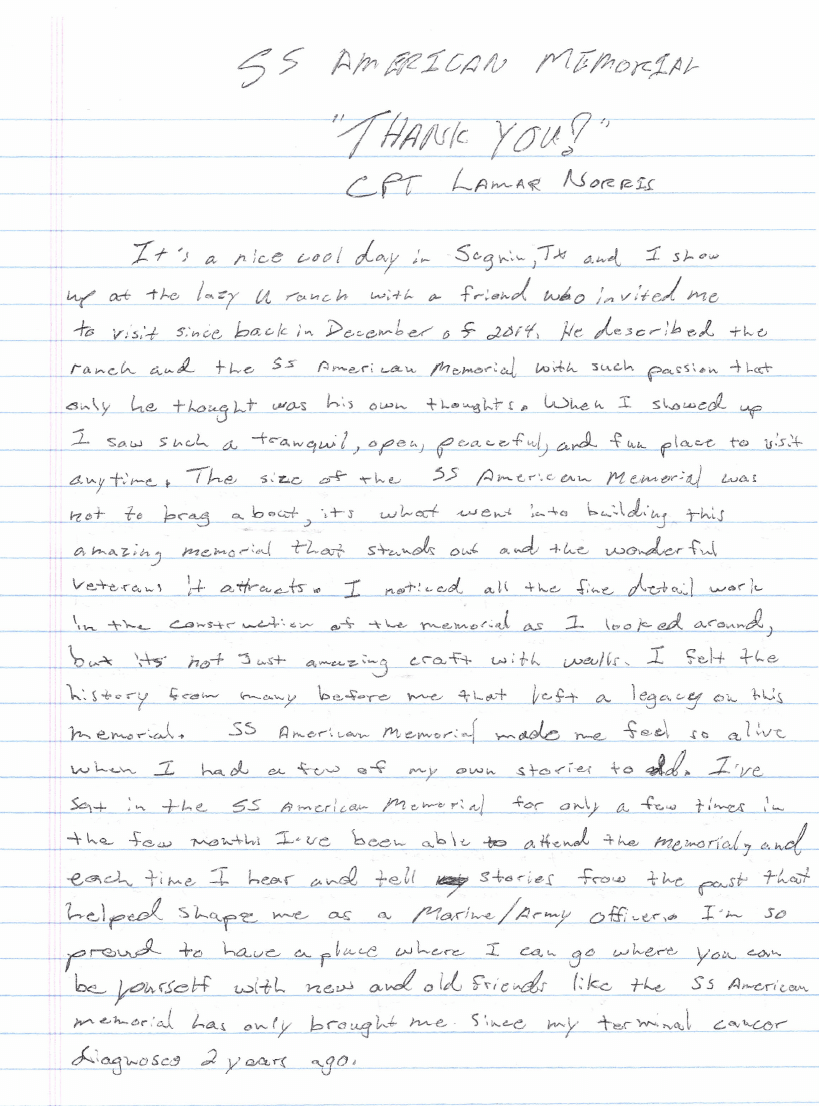 SS AMERICAN MEMORIAL
"THANK YOU!"
CPT LAMAR NORRIS
It's a nice cool day in Seguin, TX and I show
up at the lazy U ranch with a friend who invited me
to visit since back in December of 2014. He described the
ranch and the SS American Memorial with such passion that
only he thought was his own thoughts. When I showed up
I saw such a tranquil, open, peaceful, and fun place to visit
anytime. The size of the SS American Memorial was
not to brag about, its what went into building this
amazing memorial that stands out and the wonderful
veterans it attracts. I noticed all the fine detail work
in the construction of the memorial as I looked around,
but its not Just amazing craft with walls. I felt the
history from many before me that left a legacy on this
memorial. SS American Memorial made me feel so alive
when I had a few of my own stories to add. I've
Sat in the SS American Memorial for only a few times in
the few months I've been able to attend the Memorial, and
each time I hear and tell stories from the past that
helped shape me as a Marine/Army Officer. I'm so
proud to have a place where I can go where you can
be yourself with new and old friends like the SS American
memorial has only brought me since my terminal cancer
diagnoses 2 years ago.